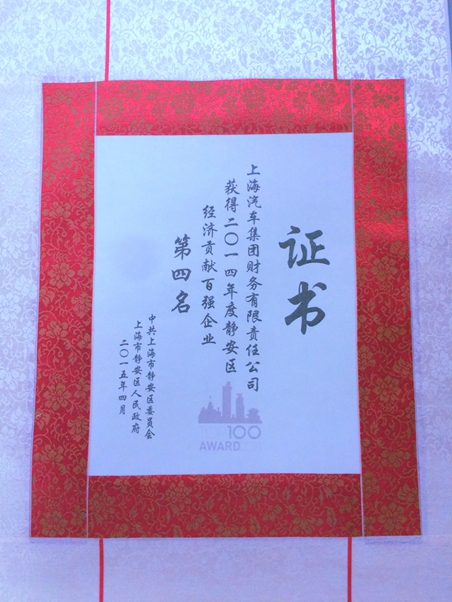 证书
上海汽车集团财务有限责任公司
获得二〇一四年度静安区
经济贡献百强企业
第四名
中共上海市静安区委员会
上海市静安区人民政府
二〇一五年四月
100
AWARD